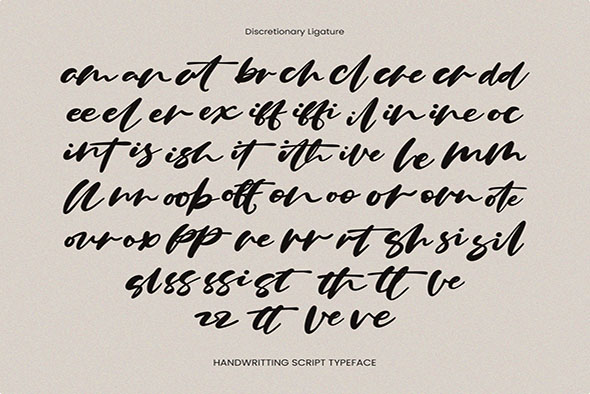 Discretionary Ligature
am an at br ch cl cre cr dd
ee el er ex iff iffi il in ine oc
int is ish it ith ive le mm
ll nn oo op off on oo or orn ote
our ox pp re rr rt sh si sil
sl ss ssi st th tt ve
zz tt ve ve
HANDWRITTING SCRIPT TYPEFACE